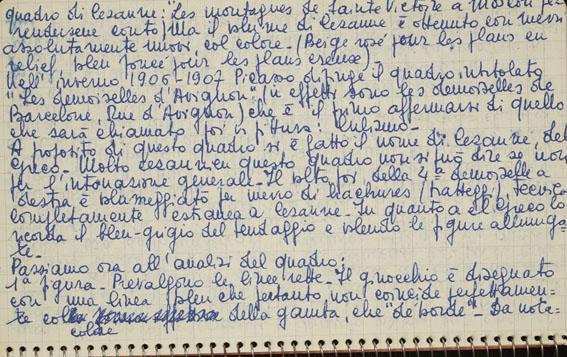 quadro di Cesanne: "Les montagnes de Sainte Victoire a Moscou per
rendersene conto) Ma il volume di Cesanne è ottenuto con mezzi
assolutamente nuovi, col colore. (Beige rosé pour les plans en
relief, bleu foncé pour les plans creux).
Nell'inverno 1906-1907 Picasso dipinge il quadro intitolato
"Les demoiselles d'Avignon" (in effetti sono les demoiselles de
Barcelone, Rue d'Avignon) che è il primo affermarsi di quello
che sarà chiamato poi in pittura: Cubismo -
A proposito di questo quadro si è fatto il nome di Cesanne, del
Greco - Molto cesanne in questo quadro non si può dire se non
per l'intonazione generale - Il volto poi, della 4ª demoiselle a
destra è ombreggiato per mezzo di hachures (tratteggi), tecnica
completamente estranea a Cesanne - In quanto a El Greco lo
ricorda il bleu-grigio del tendaggio e volendo le figure allunga-
te -
Passiamo ora all'analisi del quadro:
1ª figura - Prevalgono le linee rette - Il ginocchio è disegnato
con una linea bleu che pertanto non coincide perfettamen-
te col colore della gamba, che "déborde" - Da nota-